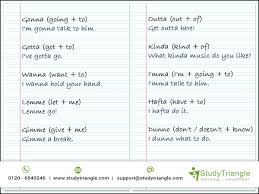 Gonna (going + to)
I'm gonna talk to him.
Gotta (got + to)
I've gotta go.
Wanna (want + to)
I wanna hold your hand.
Lemme (let + me)
Lemme go!
Gimme (give + me)
Gimme a break.
Outta (out + of)
Get outta here!
Kinda (kind + of)
What kinda music do you like?
I'mma (I'm + going + to)
I'mma talk to him.
Hafta (have + to)
I hafta do it.
Dunno (don't / doesn't + know)
I dunno what to do.
0120 - 6540246 | support@studytriangle.com
www.studytriangle.com
StudyTriangle